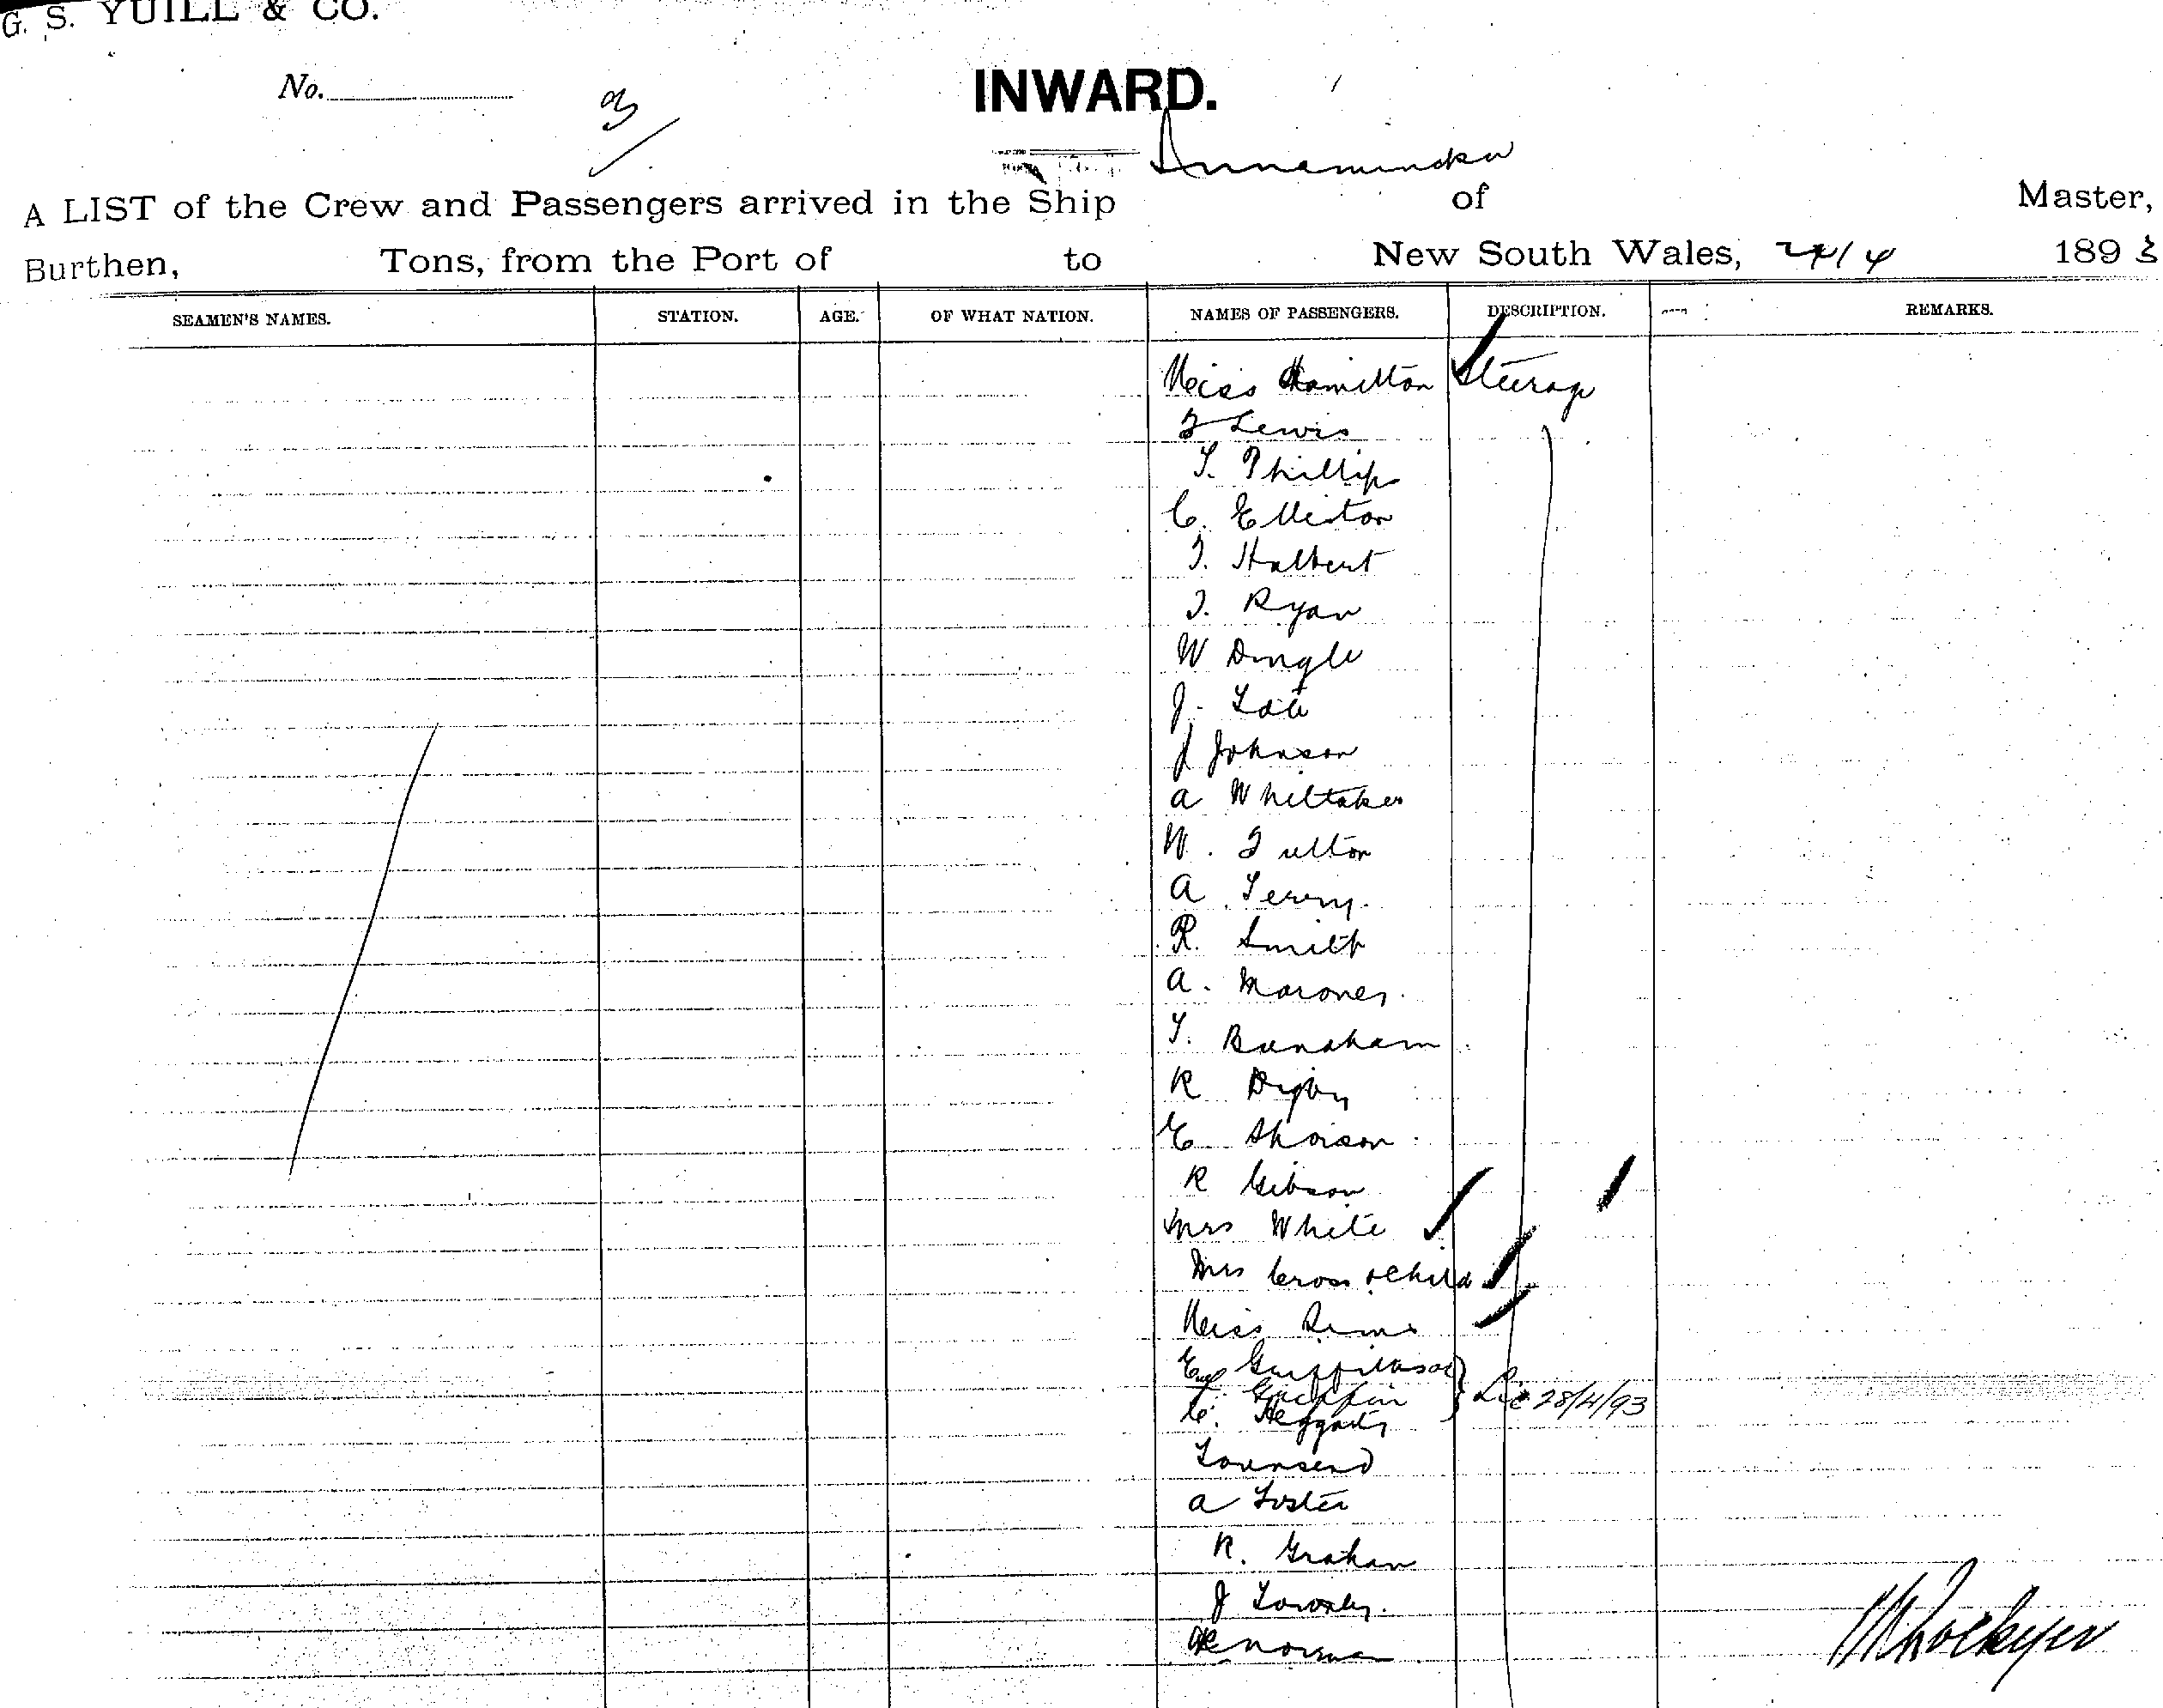 G. S. YUILL & CO.
No.
3/
INWARD.
Innamincka
A LIST of the Crew and Passengers arrived in the Ship of Master,
Burthen, Tons, from the Port of to New South Wales, 24/4 1893
SEAMEN'S NAMES. STATION. AGE. OF WHAT NATION. NAMES OF PASSENGERS. DESCRIPTION. REMARKS.
Miss Hamilton Steerage
F Lewis
T. Phillips
C. Elliston
T. Halbert
J. Ryan
W Dingle
J. Tate
J Johnson
A Whittaker
W. Fulton
A Terry.
R. Smith
A. Maroney.
T.
R Digby
E
R Gibson
Mrs White
Mrs Cross & Child
Miss
E
T. Griffin Lie 28/4/93
C. Heggarty
Townsend
A Foster
R. Graham
J Townley.
Norman